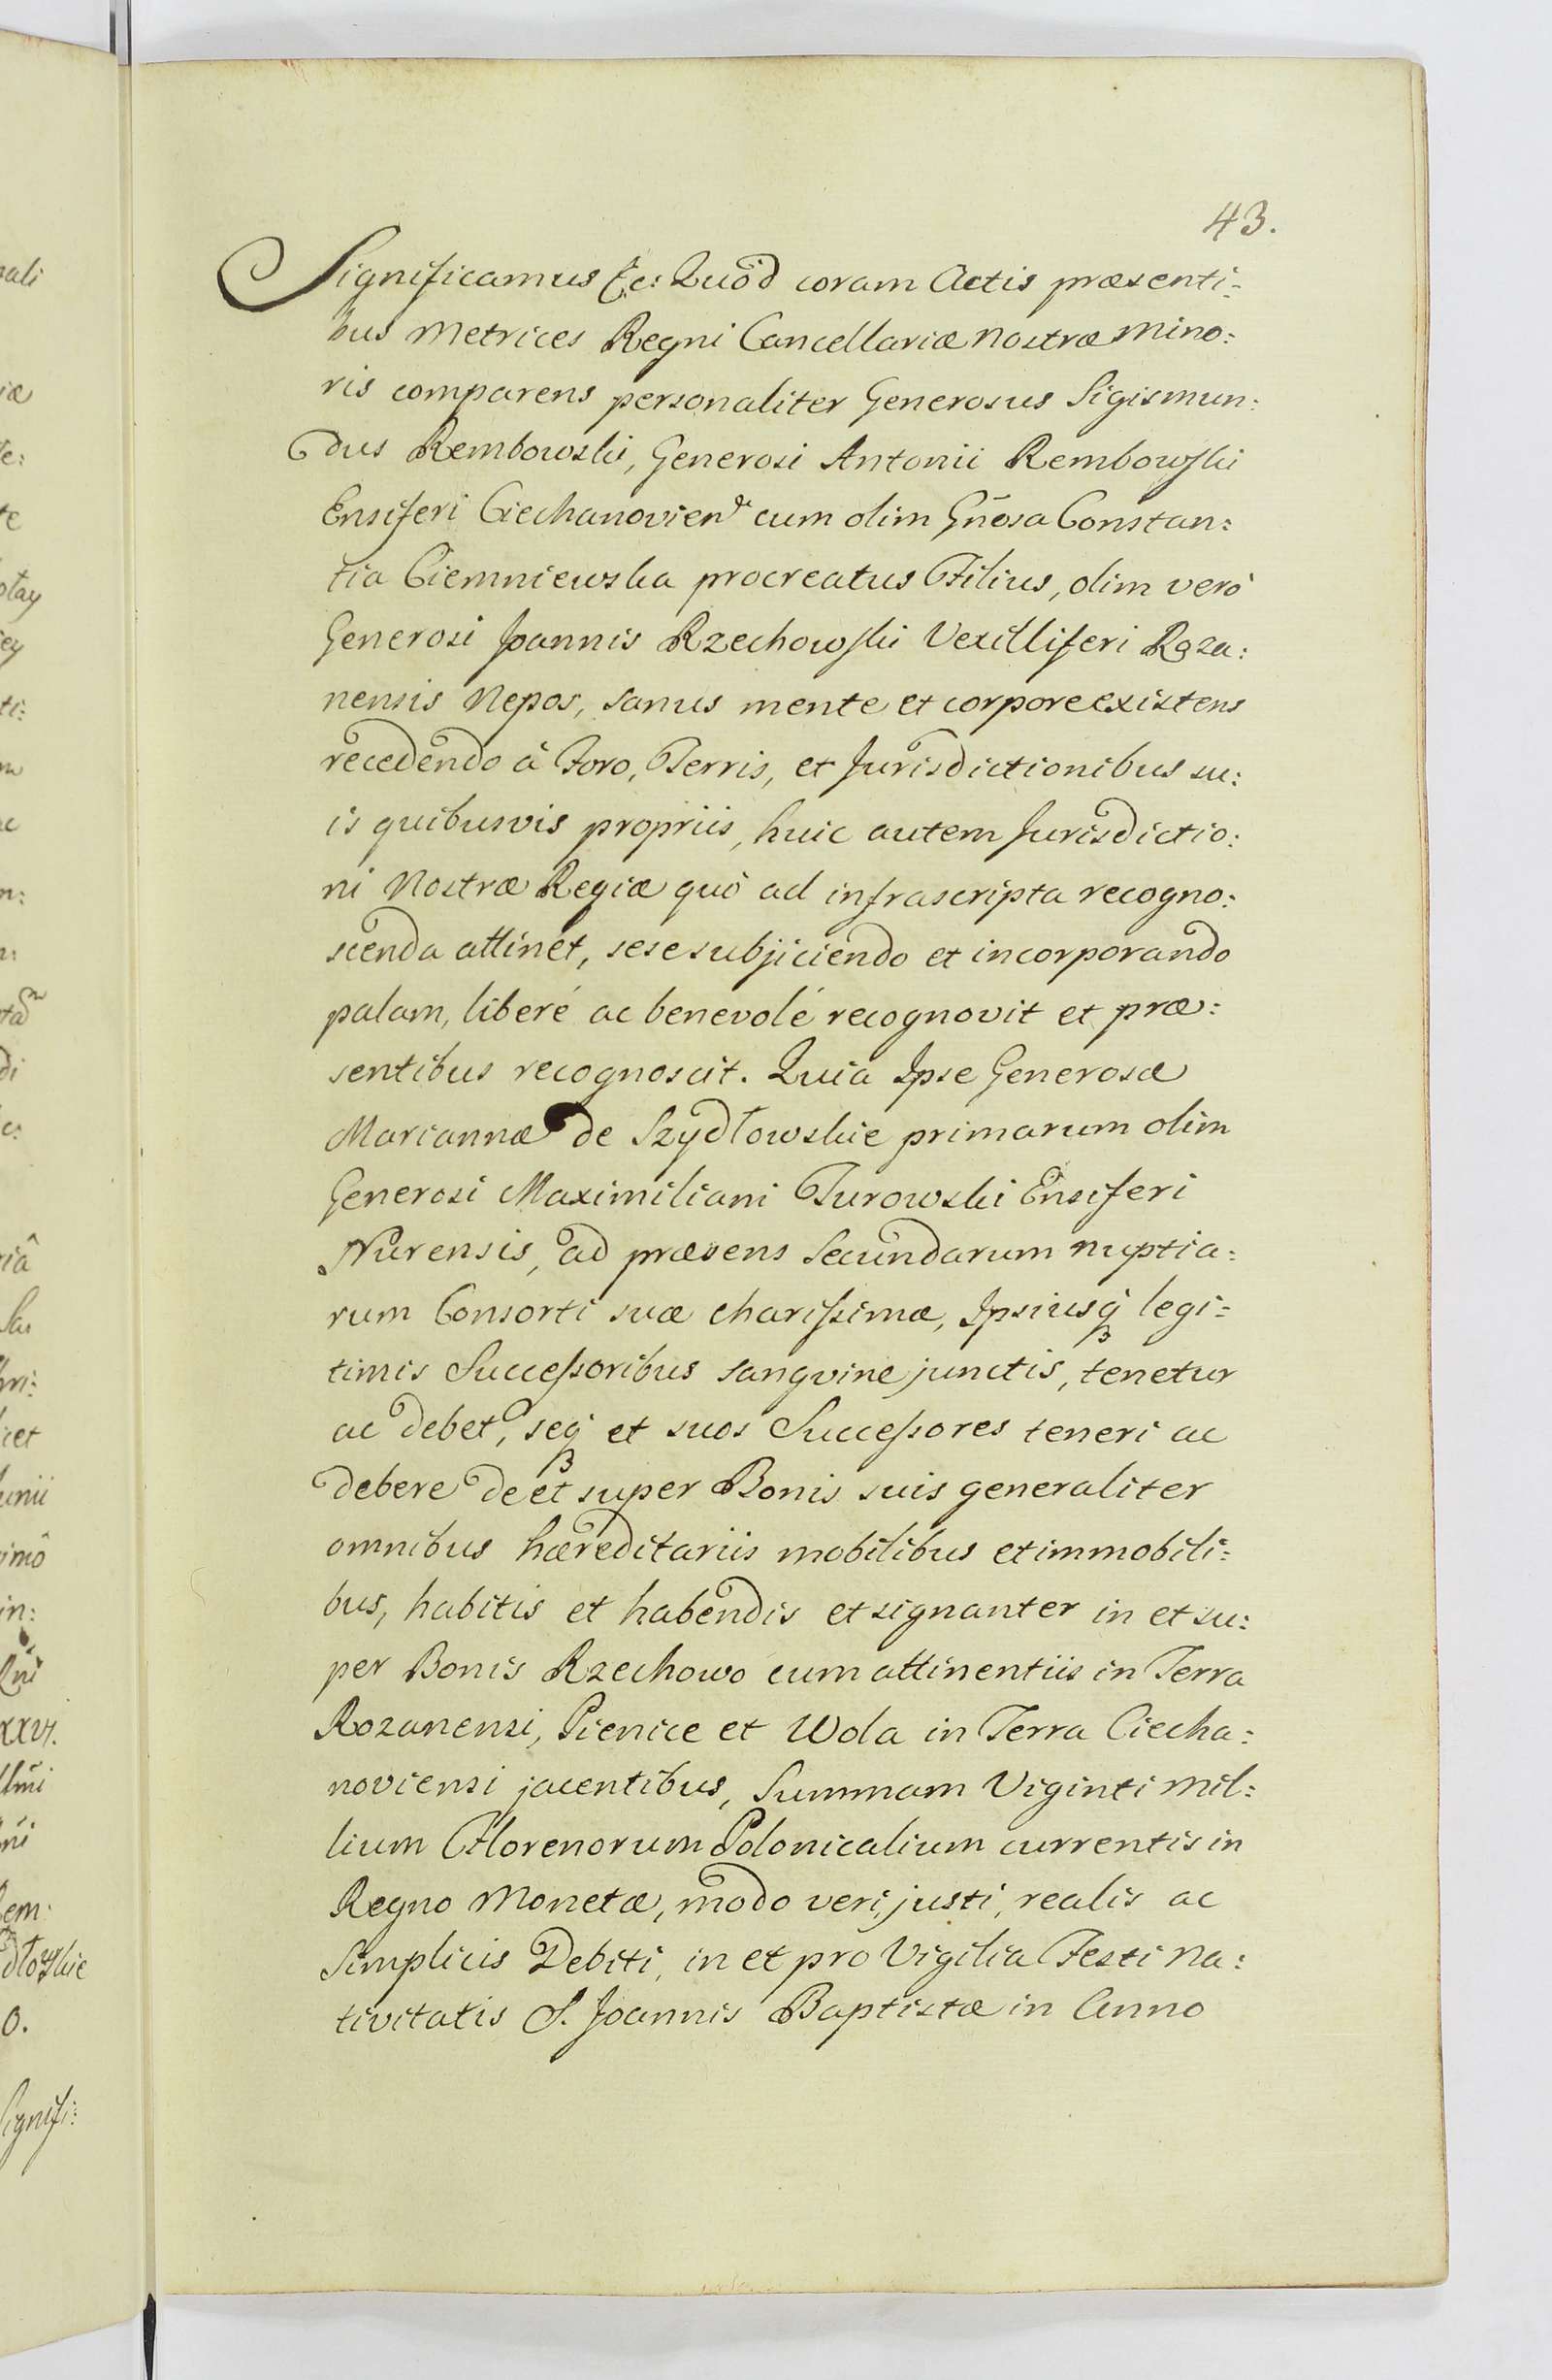 43.
Significamus &c: Quòd coram Actis præsenti:
bus Metrices Regni Cancellariæ Nostræ Mino:
ris comparens personaliter Generosus Sigismun:
dus Rembowski, Generosi Antonii Rembowski
Ensiferi Ciechanovien. cum olim Gñosa Constan:
tia Ciemniewska procreatus Filius, olim verò
Generosi Joannis Rzechowski Vexilliferi Roza:
nensis Nepos, sanus mente et corpore existens
recedendo à Foro, Terris, et Jurisdictionibus su:
is quibusvis propriis, huic autem Jurisdictio:
ni Nostræ Regiæ quò ad infrascripta recogno:
scenda attinet, sese subjiciendo et incorporando
palam, liberé ac benevolé recognovit et præ:
sentibus recognoscit. Quia Ipse Generosæ
Mariannæ de Szydłowskie primarum olim
Generosi Maximiliani Turowski Ensiferi
Nurensis, ad præsens Secundarum nuptia:
rum Consorti suæ charissimæ, Ipsiusq legi:
timis Successoribus sangvine junctis, tenetur
ac debet, seq et suos Successores teneri ac
debere de et super Bonis suis generaliter
omnibus hæreditariis mobilibus et immobili:
bus, habitis et habendis et signanter in et su:
per Bonis Rzechowo cum attinentiis in Terra
Rozanensi, Pienice et Wola in Terra Ciecha:
noviensi jacentibus, Summam Viginti Mil:
lium Florenorum Polonicalium currentis in
Regno Monetæ, modo veri, justi, realis ac
Simplicis Debiti, in et pro Vigilia Festi Na:
tivitatis S. Joannis Baptistæ in Anno